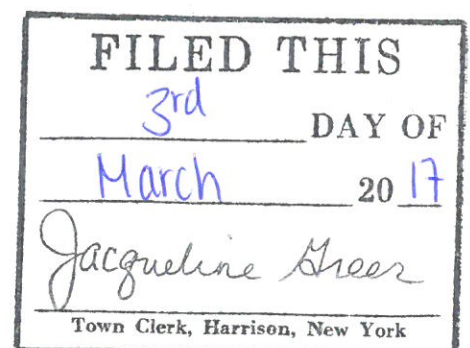 FILED THIS
3rd DAY OF
March 20 17
Jacqueline Greer
Town Clerk, Harrison, New York